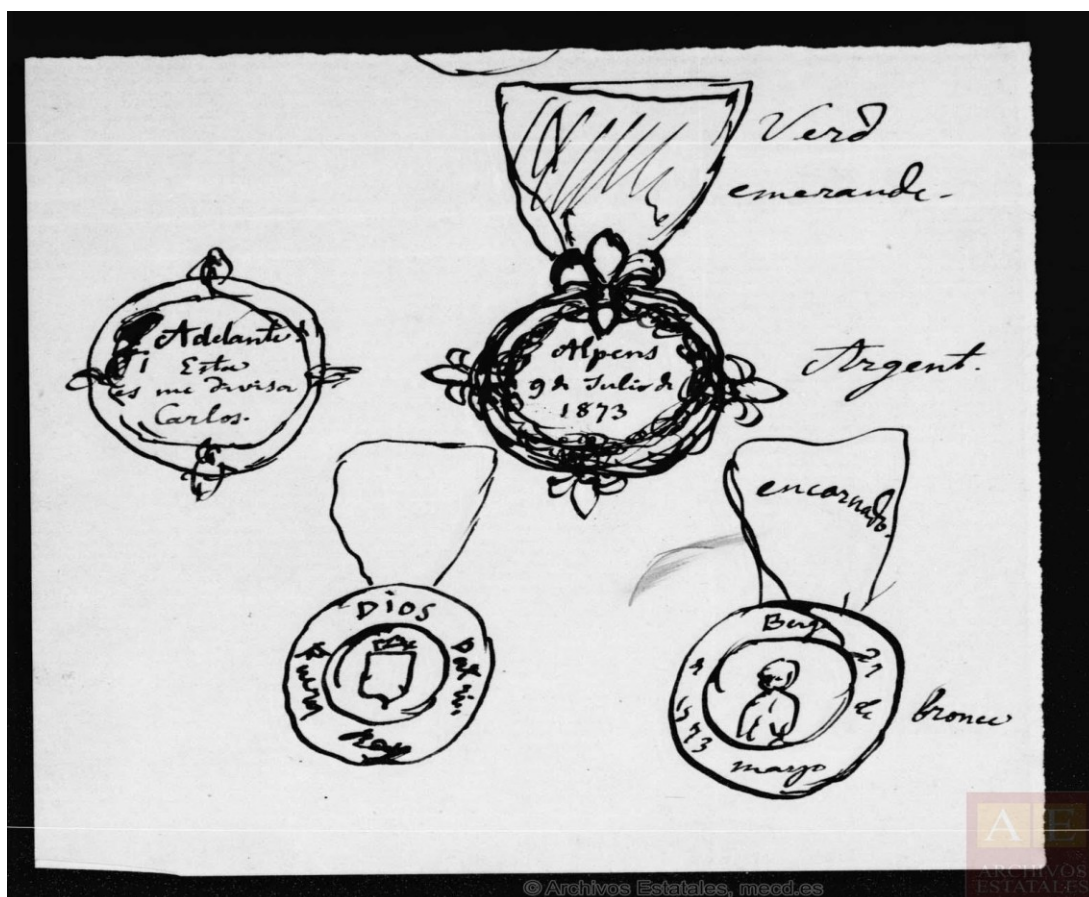 Verd
emeraude.
Adelante
Esta
es mi divisa
Carlos.
Alpens
9 de Julio de
1873
Argent.
encarnado.
DiOS
Patria
Rey
Fueros
Berga
27
de
mayo
1873
bronce
A E
ARCHIVOS
ESTATALES
© Archivos Estatales, mecd.es